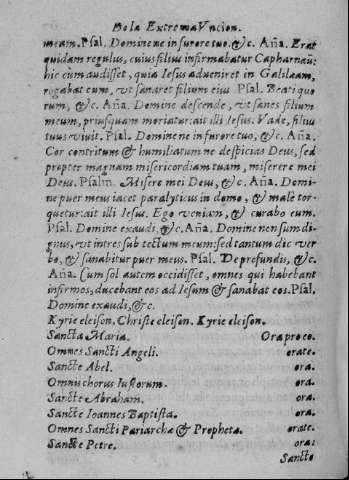 De la Extrema Vncion.
meam. Psal. Domine ne in furore tuo, &c. Aña. Erat
quidam regulus, cuius filius infirmabatur Capharnau:
hic cum audisset, quia Iesus adueniret in Galilæam,
rogabat eum, vt sanaret filium eius Psal. Beati quo
rum, &c. Aña. Domine descende, vt sanes filium
meum, priusquam moriatur: ait illi Iesus. Vade, filius
tuus viuit. Psal. Domine ne in furore tuo, &c. Aña.
Cor contritum & humiliatum ne despicias Deus, sed
propter magnam misericordiam tuam, miserere mei
Deus. Psalm. Misere mei Deus, &c. Aña. Domi-
ne puer meus iacet paralyticus in domo, & malè tor-
quetur: ait illi Iesus. Ego veniam, & curabo eum.
Psal. Domine exaudi, &c. Aña. Domine non sum di-
gnus, vt intres sub tectum meum: sed tantum dic ver
bo, & sanabitur puer meus. Psal. De profundis, &c.
Aña. Cum sol autem occidisset, omnes qui habebant
infirmos, ducebant eos ad Iesum & sanabat eos. Psal.
Domine exaudi, &c.
Kyrie eleison. Christe eleison. Kyrie eleison.
Sancta Maria. Ora pro eo.
Omnes Sancti Angeli. orate.
Sancte Abel. ora.
Omnis chorus Iustorum. ora.
Sancte Abraham. ora.
Sancte Ioannes Baptista. ora.
Omnes Sancti Pariarchæ & Prophetæ. orate.
Sancte Petre. ora:
Sancte